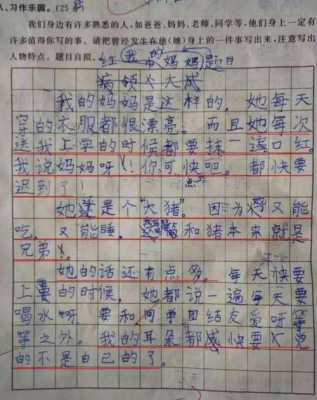 八、习作乐园。(25分)
我们身边有许多熟悉的人,如爸爸、妈妈、老师、同学等,他们身上一定有
许多值得你写的事。请把曾经发生在他(她)身上的一件事写出来,注意写出
人物特点。题目自拟。
题目
我的妈妈是这样的,她每天
穿的衣服都很漂亮。而且她每次
送我上学的时候都要抹一遍口红
我说妈妈呀!你可快吧。都快要
点
迟到了!
她还是个“大猪”。因为她又能
吃,又能睡。和猪本来就是
兄弟
她的话还有点多。每天快要
上的时候,她都说一遍每天要
喝水呀要和同学团结友爱呀等
等之外。我的耳朵都感快要
的不是自己的了。